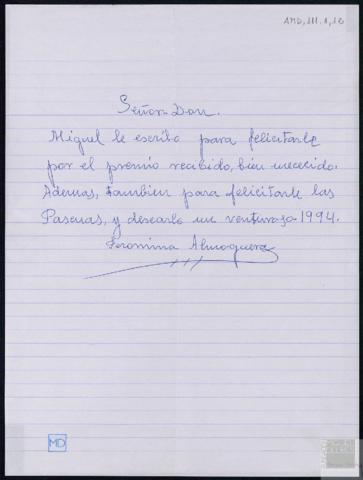 AMD, III.1, 18
Señor Don.
Miguel le escribo para felicitarle
por el premio recibido, bien merecido.
Ademas, tambien para felicitarle las
Pascuas, y desearle un venturoso 1994.
Jeronima Almoguera
MD